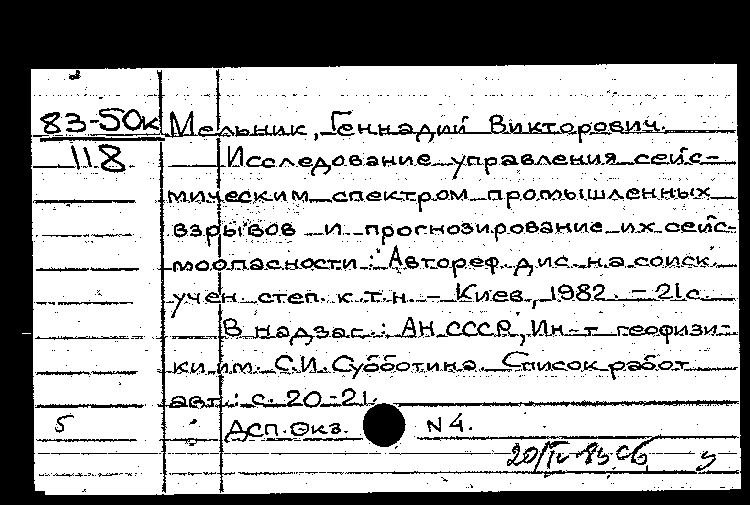 83-50к Мельник, Геннадий Викторович.
118 Исследование управления сейс-
мическим спектром промышленных
взрывов и прогнозирование их сейс-
моопасности : Автореф. дис. на соиск.
учен. степ. к.т.н. - Киев, 1982. - 21 с.
В надзаг.: АН СССР, Ин-т геофизи-
ки им. С.И. Субботина. Список работ
авт.: с. 20-21.
5 ДСП. Экз. N 4.
20/IV-83